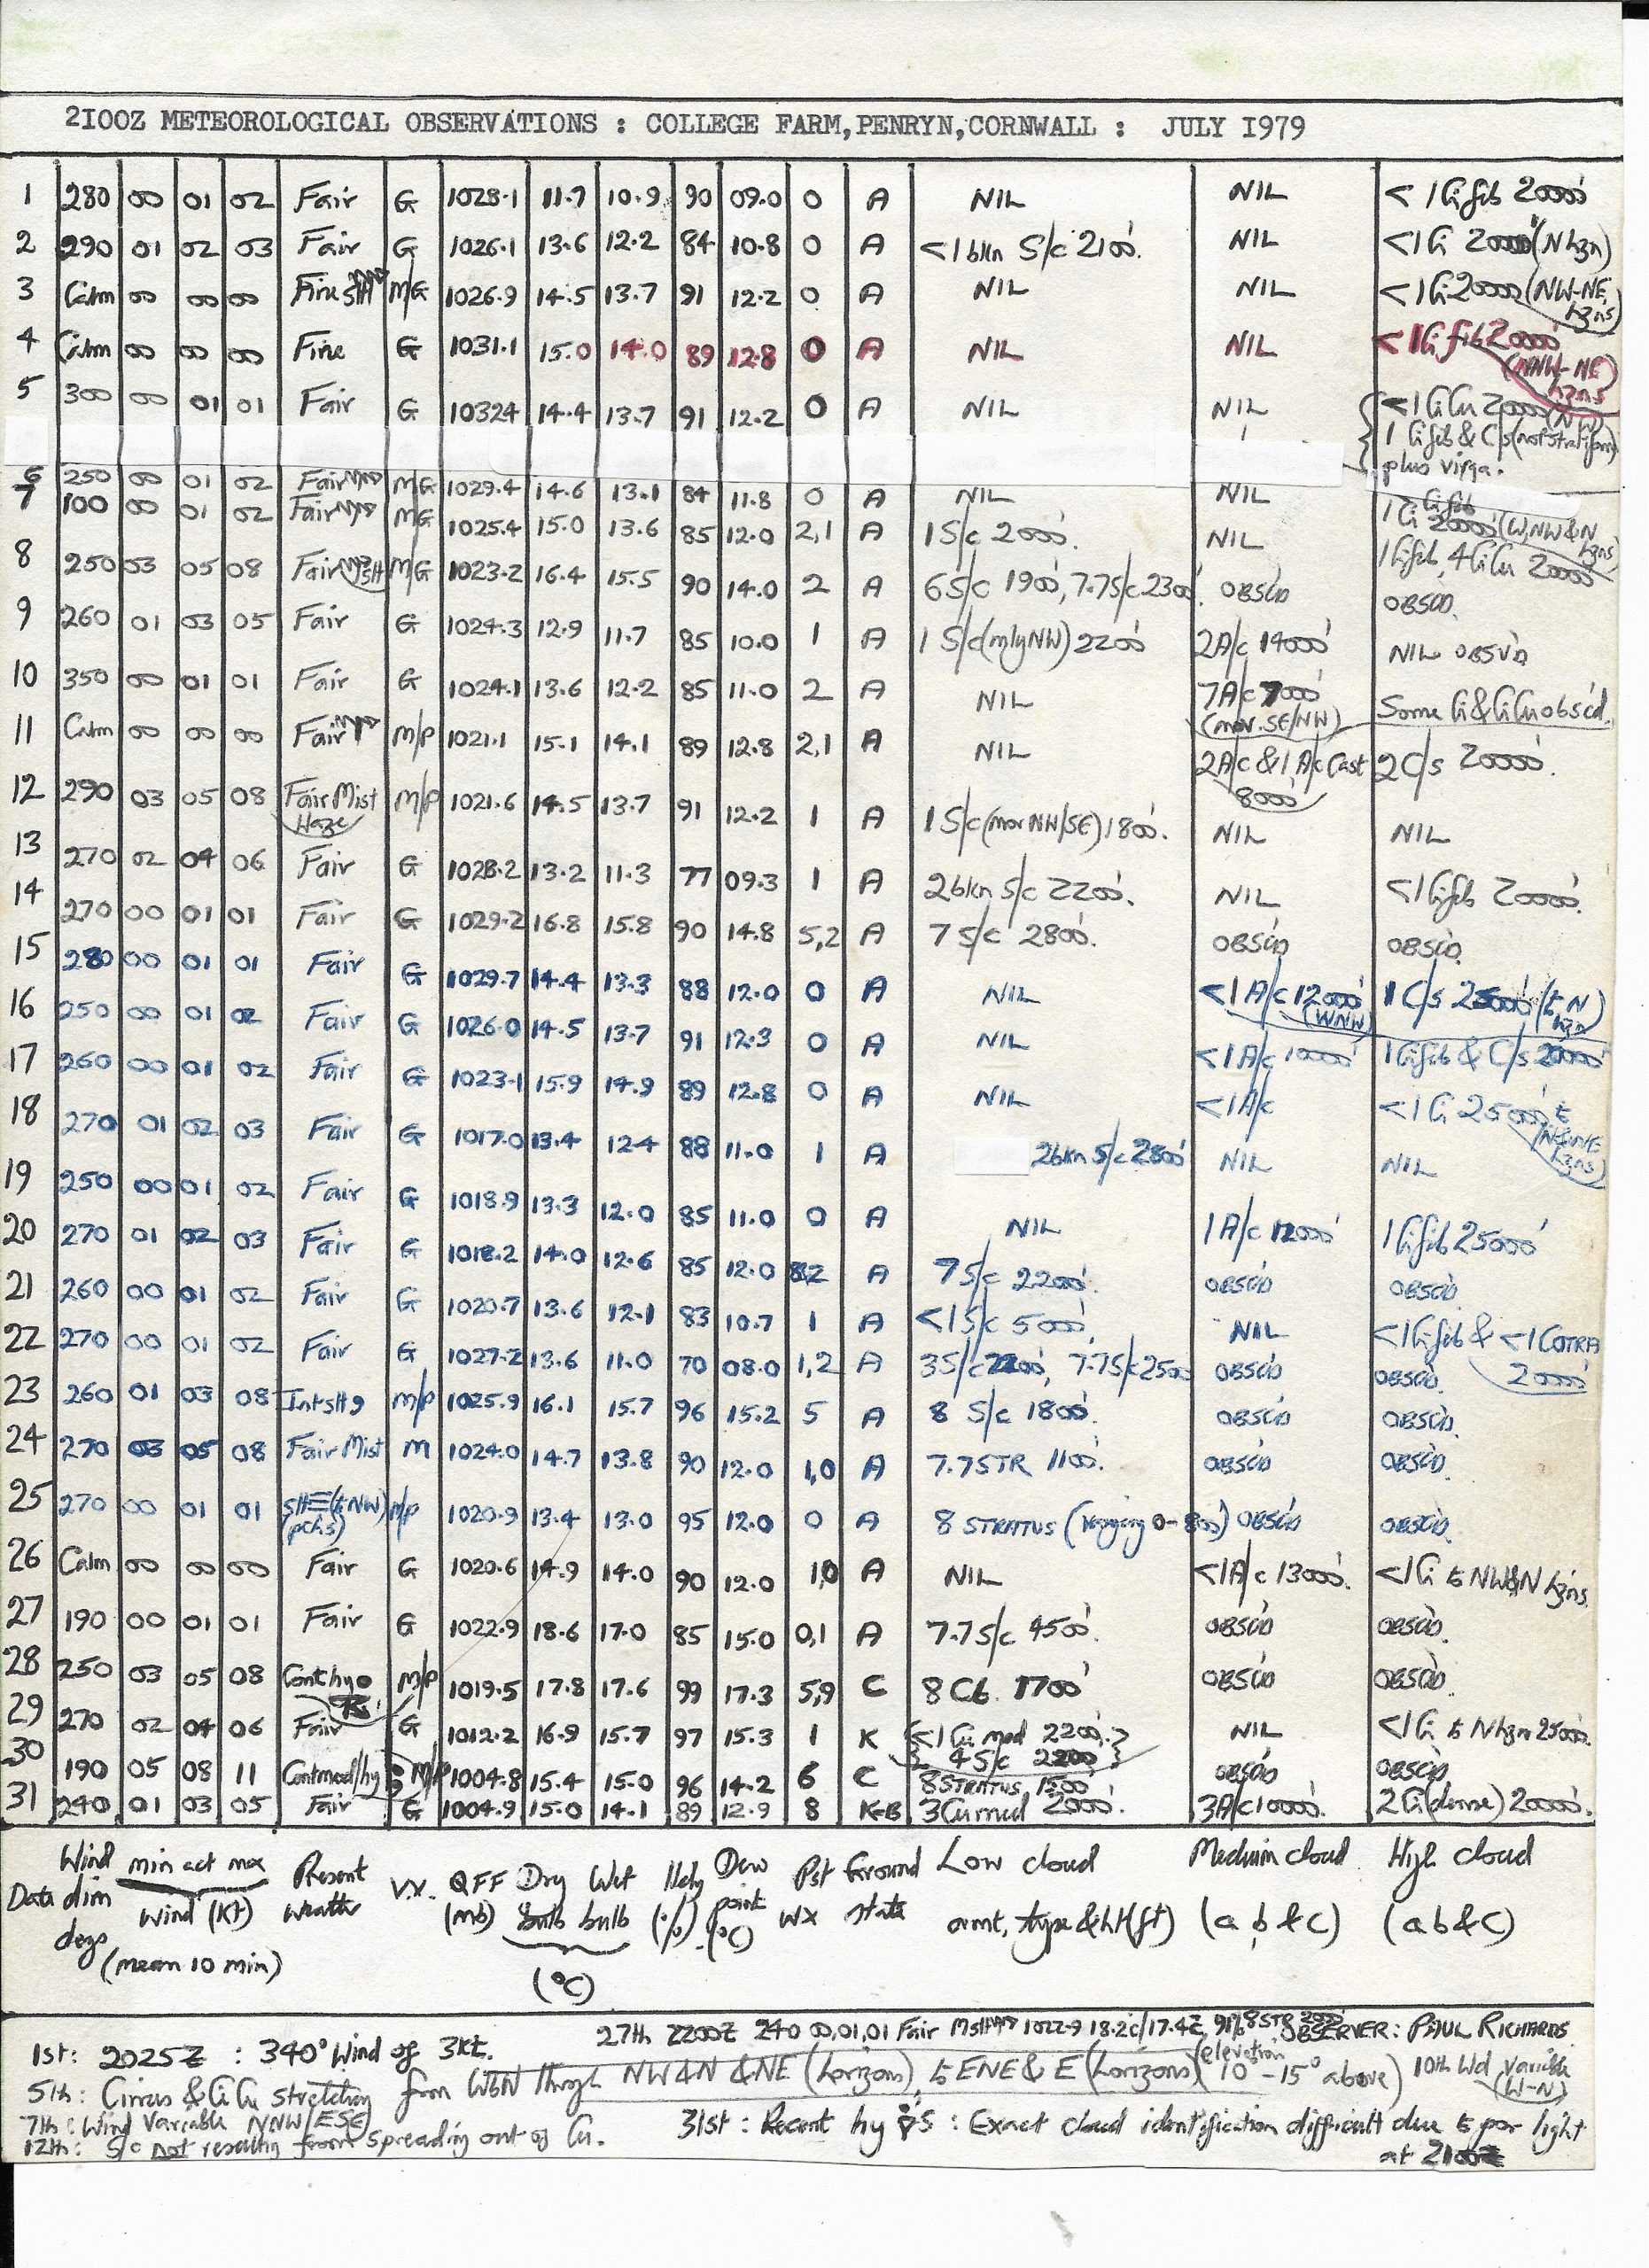 2100Z METEOROLOGICAL OBSERVATIONS : COLLEGE FARM,PENRYN,CORNWALL : JULY 1979
1 280 00 01 02 Fair G 1028.1 11.7 10.9 90 09.0 0 A NIL NIL <1 Ci fib 20000'
2 290 01 02 03 Fair G 1026.1 13.6 12.2 84 10.8 0 A <1 bkn S/c 2100'. NIL <1 Ci 20000' (N hzn)
3 Calm 00 00 00 Fine M/G 1026.9 14.5 13.7 91 12.2 0 A NIL NIL <1 Ci 20000 (NW-NE hzns)
4 Calm 00 00 00 Fine G 1031.1 15.0 14.0 89 12.8 0 A NIL NIL <1 Ci fib 20000' (NNW-NE hzns)
5 300 00 01 01 Fair G 10324 14.4 13.7 91 12.2 0 A NIL NIL <1 CiCu 20000' (NW) 1 Ci fib & C/s (not stratiform) plus virga.
6 250 00 01 02 Fair M/G 1029.4 14.6 13.1 84 11.8 0 A NIL NIL 1 Ci 20000' (W,NW&N hzns)
7 100 00 01 02 Fair M/G 1025.4 15.0 13.6 85 12.0 2,1 A 1 S/c 2000'. NIL 1 Ci fib, 4 CiCu 20000'
8 250 03 05 08 Fair M/G 1023.2 16.4 15.5 90 14.0 2 A 6 S/c 1900', 7.7 S/c 2300'. OBSC'D OBSC'D.
9 260 01 03 05 Fair G 1024.3 12.9 11.7 85 10.0 1 A 1 S/c (mly NW) 2200' 2 A/c 14000' NIL OBSV'D
10 350 00 01 01 Fair G 1024.1 13.6 12.2 85 11.0 2 A NIL 7 A/c 7000' (mov. SE/NW) Some Ci & CiCu obsc'd.
11 Calm 00 00 00 Fair M/P 1021.1 15.1 14.1 89 12.8 2,1 A NIL 2 A/c & 1 A/c Cast 8000' 2 C/s 20000'.
12 290 03 05 08 Fair Mist Haze M/P 1021.6 14.5 13.7 91 12.2 1 A 1 S/c (mov NW/SE) 1800'. NIL NIL
13 270 02 04 06 Fair G 1028.2 13.2 11.3 77 09.3 1 A 2 bkn S/c 2200'. NIL <1 Ci fib 20000'.
14 270 00 01 01 Fair G 1029.2 16.8 15.8 90 14.8 5,2 A 7 S/c 2800'. OBSC'D OBSC'D.
15 280 00 01 01 Fair G 1029.7 14.4 13.3 88 12.0 0 A NIL <1 A/c 12000' (WNW) 1 C/s 25000' (to N hzn)
16 250 00 01 02 Fair G 1026.0 14.5 13.7 91 12.3 0 A NIL <1 A/c 10000' 1 Ci fib & C/s 20000'
17 260 00 01 02 Fair G 1023.1 15.9 14.9 89 12.8 0 A NIL <1 A/c <1 Ci 25000' to (N&NNE hzns)
18 270 01 02 03 Fair G 1017.0 13.4 124 88 11.0 1 A 2 bkn S/c 2800' NIL NIL
19 250 00 01 02 Fair G 1018.9 13.3 12.0 85 11.0 0 A NIL 1 A/c 12000' 1 Ci fib 25000'
20 270 01 02 03 Fair G 1018.2 14.0 12.6 85 12.0 A 7 S/c 2200'. OBSC'D OBSC'D.
21 260 00 01 02 Fair G 1020.7 13.6 12.1 83 10.7 1 A <1 S/c 5000' NIL <1 Ci fib & <1 COTRA 20000'
22 270 00 01 02 Fair G 1027.2 13.6 11.0 70 08.0 1,2 A 3 S/c 2200', 7.7 S/c 2500 OBSC'D OBSC'D.
23 260 01 03 08 Int slt M/P 1025.9 16.1 15.7 96 15.2 5 A 8 S/c 1800'. OBSC'D OBSC'D.
24 270 03 05 08 Fair Mist M 1024.0 14.7 13.8 90 12.0 1,0 A 7.7 STR 1100'. OBSC'D OBSC'D.
25 270 00 01 01 Slt ≡ (to NW) (pchs) M/P 1020.9 13.4 13.0 95 12.0 0 A 8 STRATUS (Varying 0-800') OBSC'D OBSC'D.
26 Calm 00 00 00 Fair G 1020.6 14.9 14.0 90 12.0 1,0 A NIL <1 A/c 13000'. <1 Ci to NW&N hzns.
27 190 00 01 01 Fair G 1022.9 18.6 17.0 85 15.0 0,1 A 7.7 S/c 4500'. OBSC'D OBSC'D.
28 250 03 05 08 Cont hy M/P 1019.5 17.8 17.6 99 17.3 5,9 C 8 Cb. 1700' OBSC'D OBSC'D.
29 270 02 04 06 Fair G 1012.2 16.9 15.7 97 15.3 1 K <1 Cu med 2200'. 4 S/c 2200 NIL <1 Ci to N hzn 25000.
30 190 05 08 11 Cont mod/hy M/P 1004.8 15.4 15.0 96 14.2 6 C 8 STRATUS 1500' OBSC'D OBSC'D.
31 240 01 03 05 Fair G 1004.9 15.0 14.1 89 12.9 8 K-B 3 Cu med 2000'. 3 A/c 10000'. 2 Ci (dense) 20000'.
Wind min act max Present Dew Pst Ground Low cloud Medium cloud. High cloud
Date dirn Wind (Kt) Weather V.V. QFF Dry Wet Hdy point WX state
degs (mean 10 min) (mb) bulb bulb (%) (°C) amt, type & ht (ft) (a b & c) (a b & c)
(°C)
27th 2200Z 240 00,01,01 Fair 1022.9 18.2c/17.4c, 91% 8 STR OBSERVER: PAUL RICHARDS.
1st: 2025Z : 340° Wind of 3kt.
5th: Cirrus & CiCu stretching from WbN through NW&N & NE (horizons), to ENE & E (horizons) (elevation 10-15° above) 10th Wd variable (W-N)
7th: Wind Variable NNW/ESE
12th: S/c not resulting from spreading out of Cu.
31st: Recent hy : Exact cloud identification difficult due to poor light at 2100Z